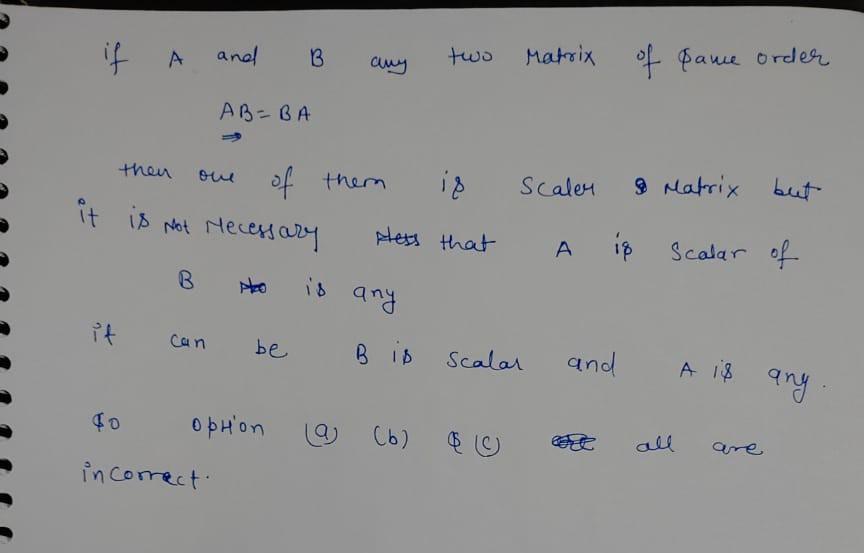 if A and B any two Matrix of same order
AB = BA
⇒
then one of them is Scaler Matrix but
it is Not Necessary that A is Scalar of
B is any
it can be B is scalar and A is any.
So option (a) (b) & (c) all are
incorrect.